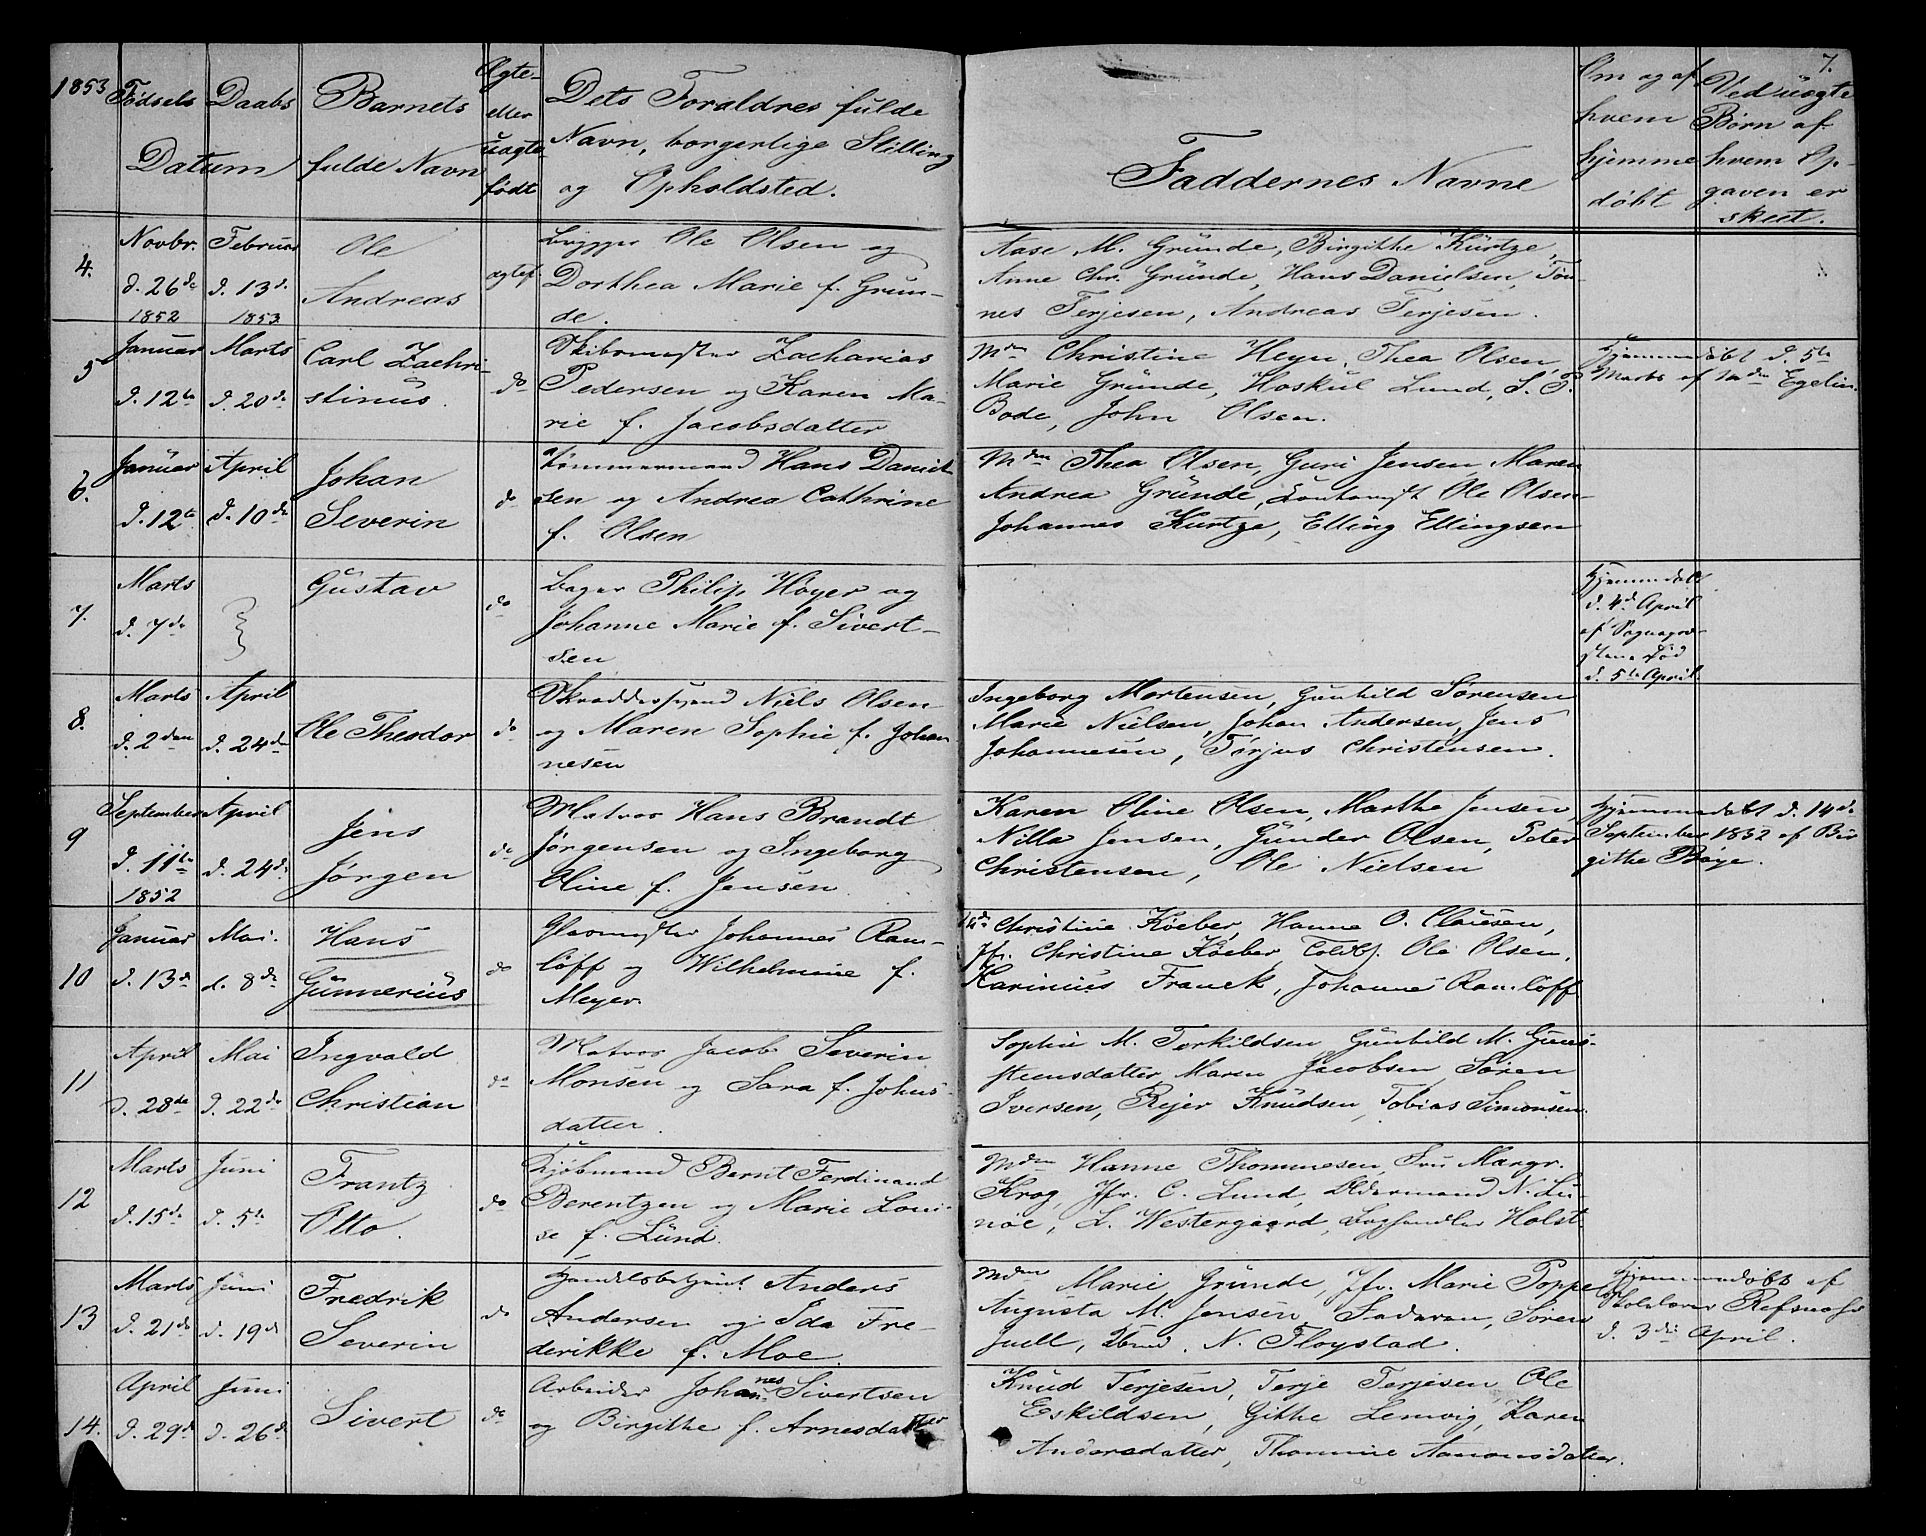 1853
Fødsels Daabs
Datum
Barnets
fulde Navn
Ægte-
eller
uægte
født
Dets Foraldres fulde
Navn, borgerlige Stilling
og Opholdsted.
Faddernes Navne
Om og af
hvem
hjemme
døbt
7.
Ved uægte
Børn af
hvem Op-
gaven er
skeet.
4.
Novbr.
d. 26de
1852
Februar
d. 13de
1853
Ole
Andreas
ægtef.
Brygger Ole Olsen og
Dorthea Marie f. Grun-
de.
Aase M. Gründe, Birgithe Kürtze,
Anne Chr. Gründe, Hans Danielsen, Tøn-
nes Terjesen, Andreas Terjesen.
5
Januar
d. 12te
Marts
d. 20de
Carl Zachri-
stinus.
do
Skibsmester Zacharias
Pedersen og Karen Ma-
rie f. Jacobsdatter
Mdm Christine Heyn, Thea Olsen,
Marie Gründe, Hoskul Lund, S. P.
Bode, John Olsen.
Hjemmedøbt d. 5te
Marts af Mdm Egelin.
6.
Januar
d. 12te
April
d. 10de
Johan
Severin
do
Tømmermand Hans Daniel-
sen og Andrea Cathrine
f. Olsen
Mdm Thea Olsen, Guri Jensen, Maren
Andrea Gründe, Ole Olsen
Johannes Kurtze, Elling Ellingsen
7.
Marts
d. 7de
Gustav
do
Bager Philip Høyer og
Johanne Marie f. Sivert-
sen
Hjemmedøbt
d. 4de April
af Sognepræ-
sten. Død
d. 5te April
8.
Marts
d. 2den
April
d. 24de
Ole Theodor
do
Skraddersvend Niels Olsen
og Maren Sophie f. Johan
nesen
Ingeborg Mortensen, Gunhild Sørensen
Marie Nielsen, Johan Andersen, Jens
Johannesen, Tørjus Christensen.
9
September
d. 11te
1852
April
d. 24de
Jens
Jørgen
do
Matros Hans Brandt
Jørgensen og Ingeborg
Oline f. Jensen
Karen Oline Olsen, Marthe Jensen,
Nilla Jensen, Gunder Olsen, Peter
Christensen, Ole Nielsen
Hjemmedøbt d. 14de
September 1852 af Bir
githe Boye.
10
Januar
d. 13de
Mai.
d. 8de
Hans
Gunnerius
do
Glasmester Johannes Ram-
löff og Wilhelmine f.
Meyer.
Christine Køeber, Hanne O. Clausen,
Jfr. Christine Køeber, Toldbtj. Ole Olsen,
Karinius Franck, Johannes Ramlöff
11
April
d. 28de
Mai
d. 22de
Ingvald
Christian
do
Matros Jacob Severin
Monsen og Sara f. Johns
datter.
Sophie M. Terkildsen Gunhild M. Guns-
steensdatter Maren Jacobsen Sören
Iversen, Rejer Knudsen, Tobias Simonsen.
12
Marts
d. 15de
Juni
d. 5te
Frantz
Otto.
do
Kjøbmand Bernt Ferdinand
Berentzen og Marie Loui-
se f. Lund.
Mdm Hanne Thommesen, Fru Margr.
Krog, Jfr. C. Lund, Oldermand N. Lu-
nøe, L. Westergaard, Boghandler Holst
13
Marts
d. 21de
Juni
d. 19de
Fredrik
Severin
do
Handelsbetjent Anders
Andersen og Ida Fre-
derikke f. Moe.
Mdm Marie Gründe, Jfr. Marie Poppe
Augusta M. Jensen, Faderen, Sören
Juell, N. Fløystad.
Hjemmedøbt af
Skolelærer Refsnæs
d. 3die April.
14.
April
d. 29de
Juni
d. 26de
Sivert
do
Arbeider Johannes Sivertsen
og Birgitte f. Arnesdatter
Knud Terjesen, Terje Terjesen, Ole
Eskildsen, Githe Lemvig, Karen
Andersdatter, Thomine Aanonsdatter.